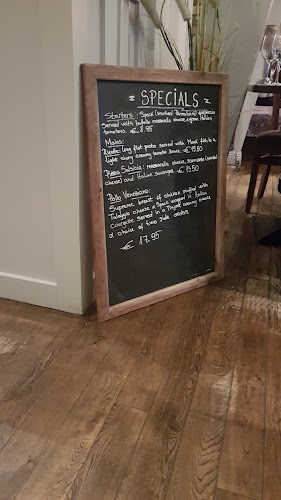 SPECIALS
Starters: Speck (smoked
served with buffalo mozzarella cheese, & green Italian
tomatoes. € 8.95
Mains:
long flat pasta served with Monk fish in a
light curry creamy tomato sauce. € 15.50
Pizza Salsiccia: mozzarella cheese, Scamorza (smoked
cheese) and Italian sausages € 13.50
Pollo Veneziano:
Supreme breast of chicken stuffed with
Taleggio cheese & Speck wrapped in Italian
courgette served in a Thyme creamy sauce
a choice of two side orders
€ 17.95